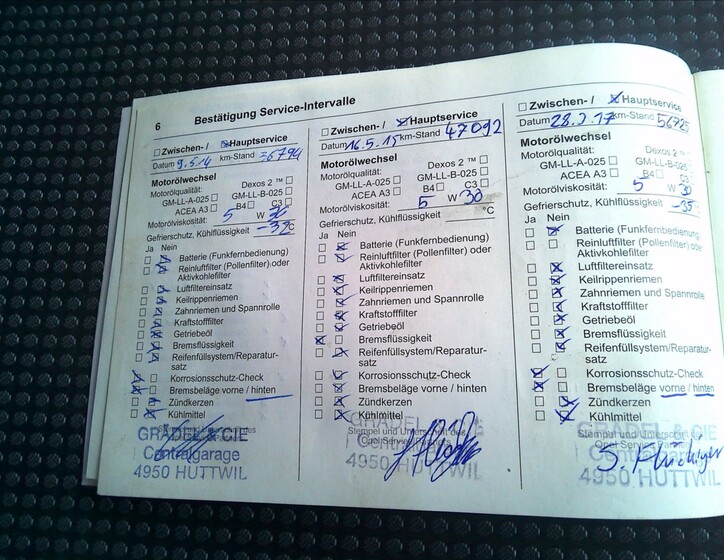 6
Bestätigung Service-Intervalle
Zwischen- / Hauptservice
Datum 9.5.14 km-Stand 36794
Motorölwechsel
Motorölqualität:
Dexos 2 ™
GM-LL-A-025 GM-LL-B-025
ACEA A3 B4 C3
Motorölviskosität: 5 W 30
Gefrierschutz, Kühlflüssigkeit °C
Ja Nein
Batterie (Funkfernbedienung)
Reinluftfilter (Pollenfilter) oder
Aktivkohlefilter
Luftfiltereinsatz
Keilrippenriemen
Zahnriemen und Spannrolle
Kraftstofffilter
Getriebeöl
Bremsflüssigkeit
Reifenfüllsystem/Reparatur-
satz
Korrosionsschutz-Check
Bremsbeläge vorne / hinten
Zündkerzen
Kühlmittel
GRÄDEL & CIE
Centralgarage
4950 HUTTWIL
Zwischen- / Hauptservice
Datum 16.5.15 km-Stand 47092
Motorölwechsel
Motorölqualität:
Dexos 2 ™
GM-LL-A-025 GM-LL-B-025
ACEA A3 B4 C3
Motorölviskosität: 5 W 30
Gefrierschutz, Kühlflüssigkeit °C
Ja Nein
Batterie (Funkfernbedienung)
Reinluftfilter (Pollenfilter) oder
Aktivkohlefilter
Luftfiltereinsatz
Keilrippenriemen
Zahnriemen und Spannrolle
Kraftstofffilter
Getriebeöl
Bremsflüssigkeit
Reifenfüllsystem/Reparatur-
satz
Korrosionsschutz-Check
Bremsbeläge vorne / hinten
Zündkerzen
Kühlmittel
Stempel und Unterschrift des
Opel Service
4950 HUTTWIL
Zwischen- / Hauptservice
Datum km-Stand
Motorölwechsel
Motorölqualität:
Dexos 2
GM-LL-A-025 GM-LL-B-025
ACEA A3 B4 C3
Motorölviskosität: 5 W 30
Gefrierschutz, Kühlflüssigkeit -35
Ja Nein
Batterie (Funkfernbedienung)
Reinluftfilter (Pollenfilter) oder
Aktivkohlefilter
Luftfiltereinsatz
Keilrippenriemen
Zahnriemen und Spannrolle
Kraftstofffilter
Getriebeöl
Bremsflüssigkeit
Reifenfüllsystem/Reparatur-
satz
Korrosionsschutz-Check
Bremsbeläge vorne / hinten
Zündkerzen
Kühlmittel
Stempel und Unterschrift des
Opel Service
4950 HUTTWIL